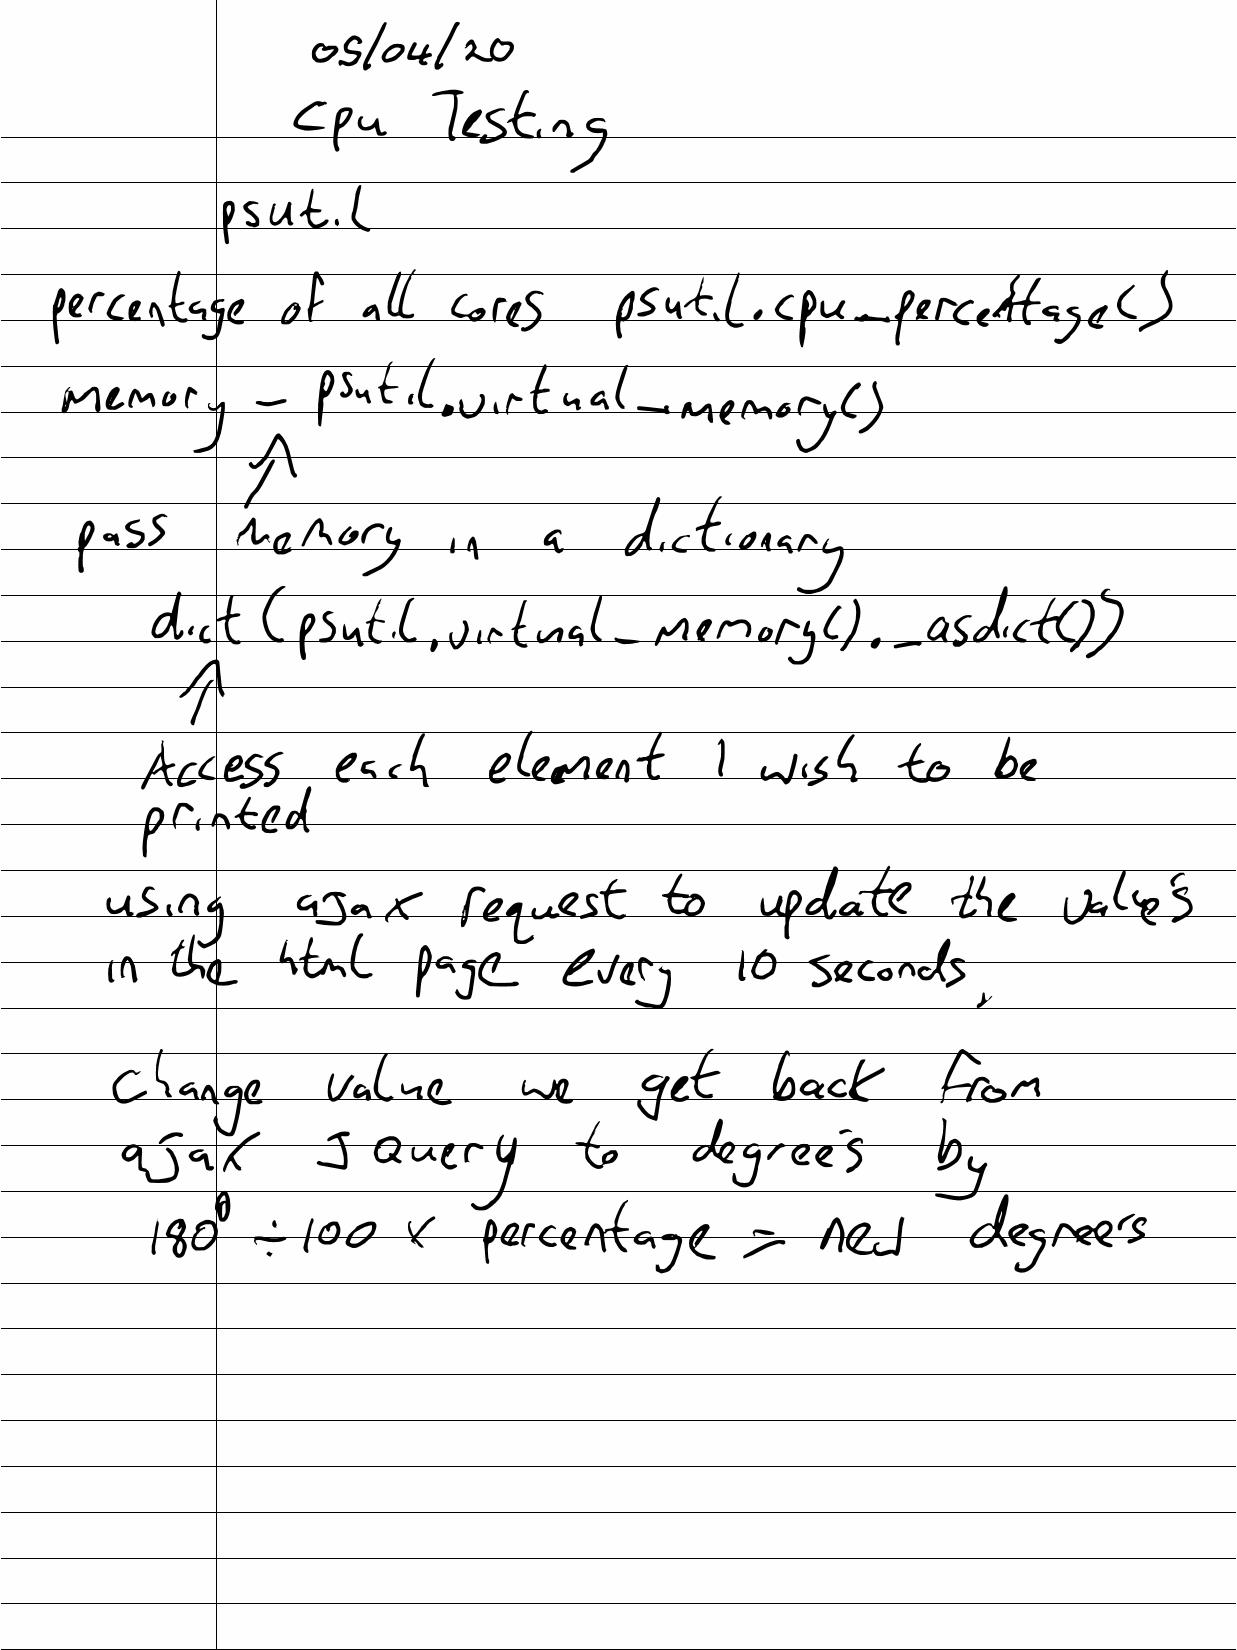 05/04/20
Cpu Testing
psutil
percentage of all cores psutil.cpu_percentage()
memory - psutil.virtual_memory()
pass memory in a dictionary
dict(psutil.virtual_memory()._asdict())
Access each element I wish to be
printed
using ajax request to update the value's
in the html page every 10 seconds,
Change value we get back from
ajax JQuery to degree's by
180° ÷ 100 x percentage = new degree's